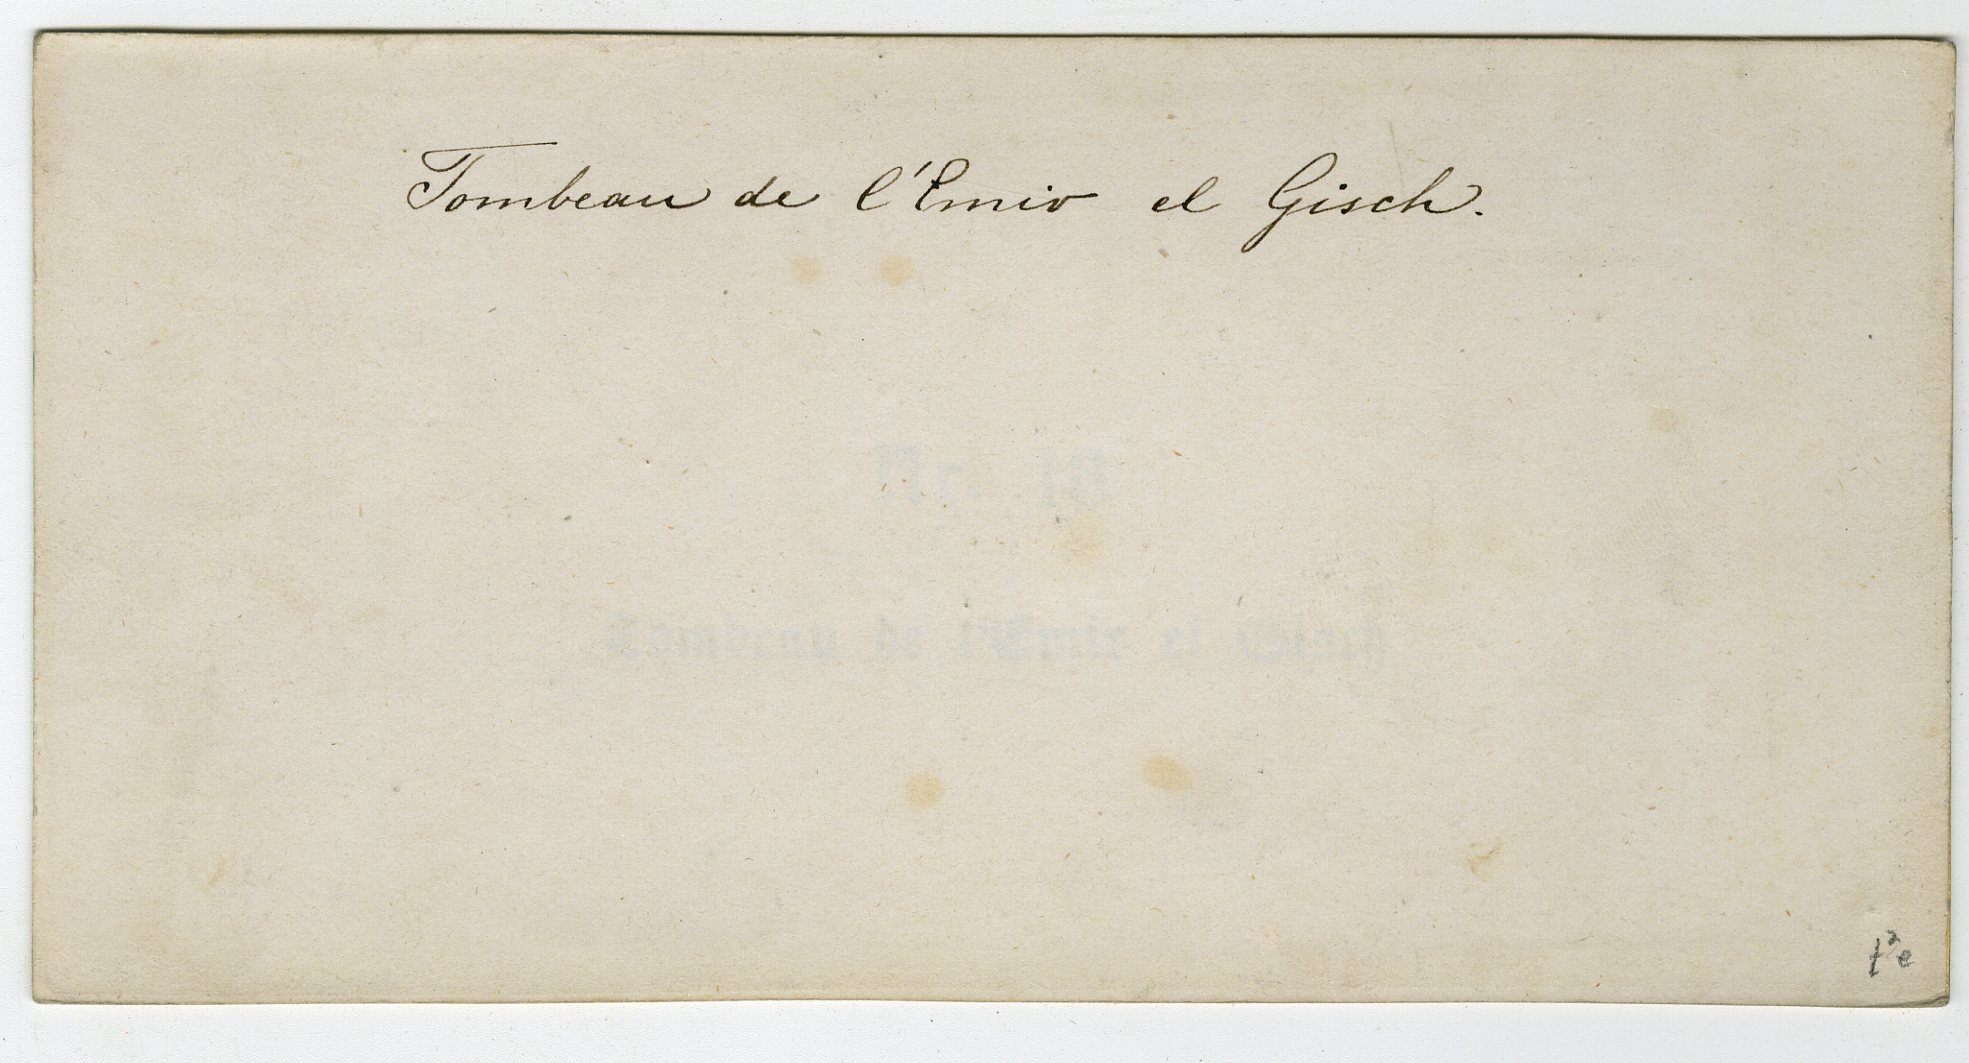 Tombeau de l'Emir el Gisch.
Tombeau de l'Emir el Gisch